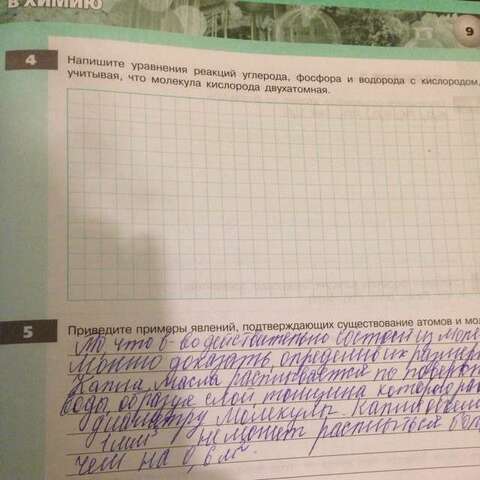 В ХИМИЮ
9
4
Напишите уравнения реакций углерода, фосфора и водорода с кислородом,
учитывая, что молекула кислорода двухатомная.
5
Приведите примеры явлений, подтверждающих существование атомов и мо
что в-во действительно состоит из моле
можно доказать, определив их размер
Капля масла расплывается по поверхн
воды, образуя слой толщина которого ра
диаметру молекулы. Капля объем
1 мм³ не может расплыться бол
чем на 0,6 м².